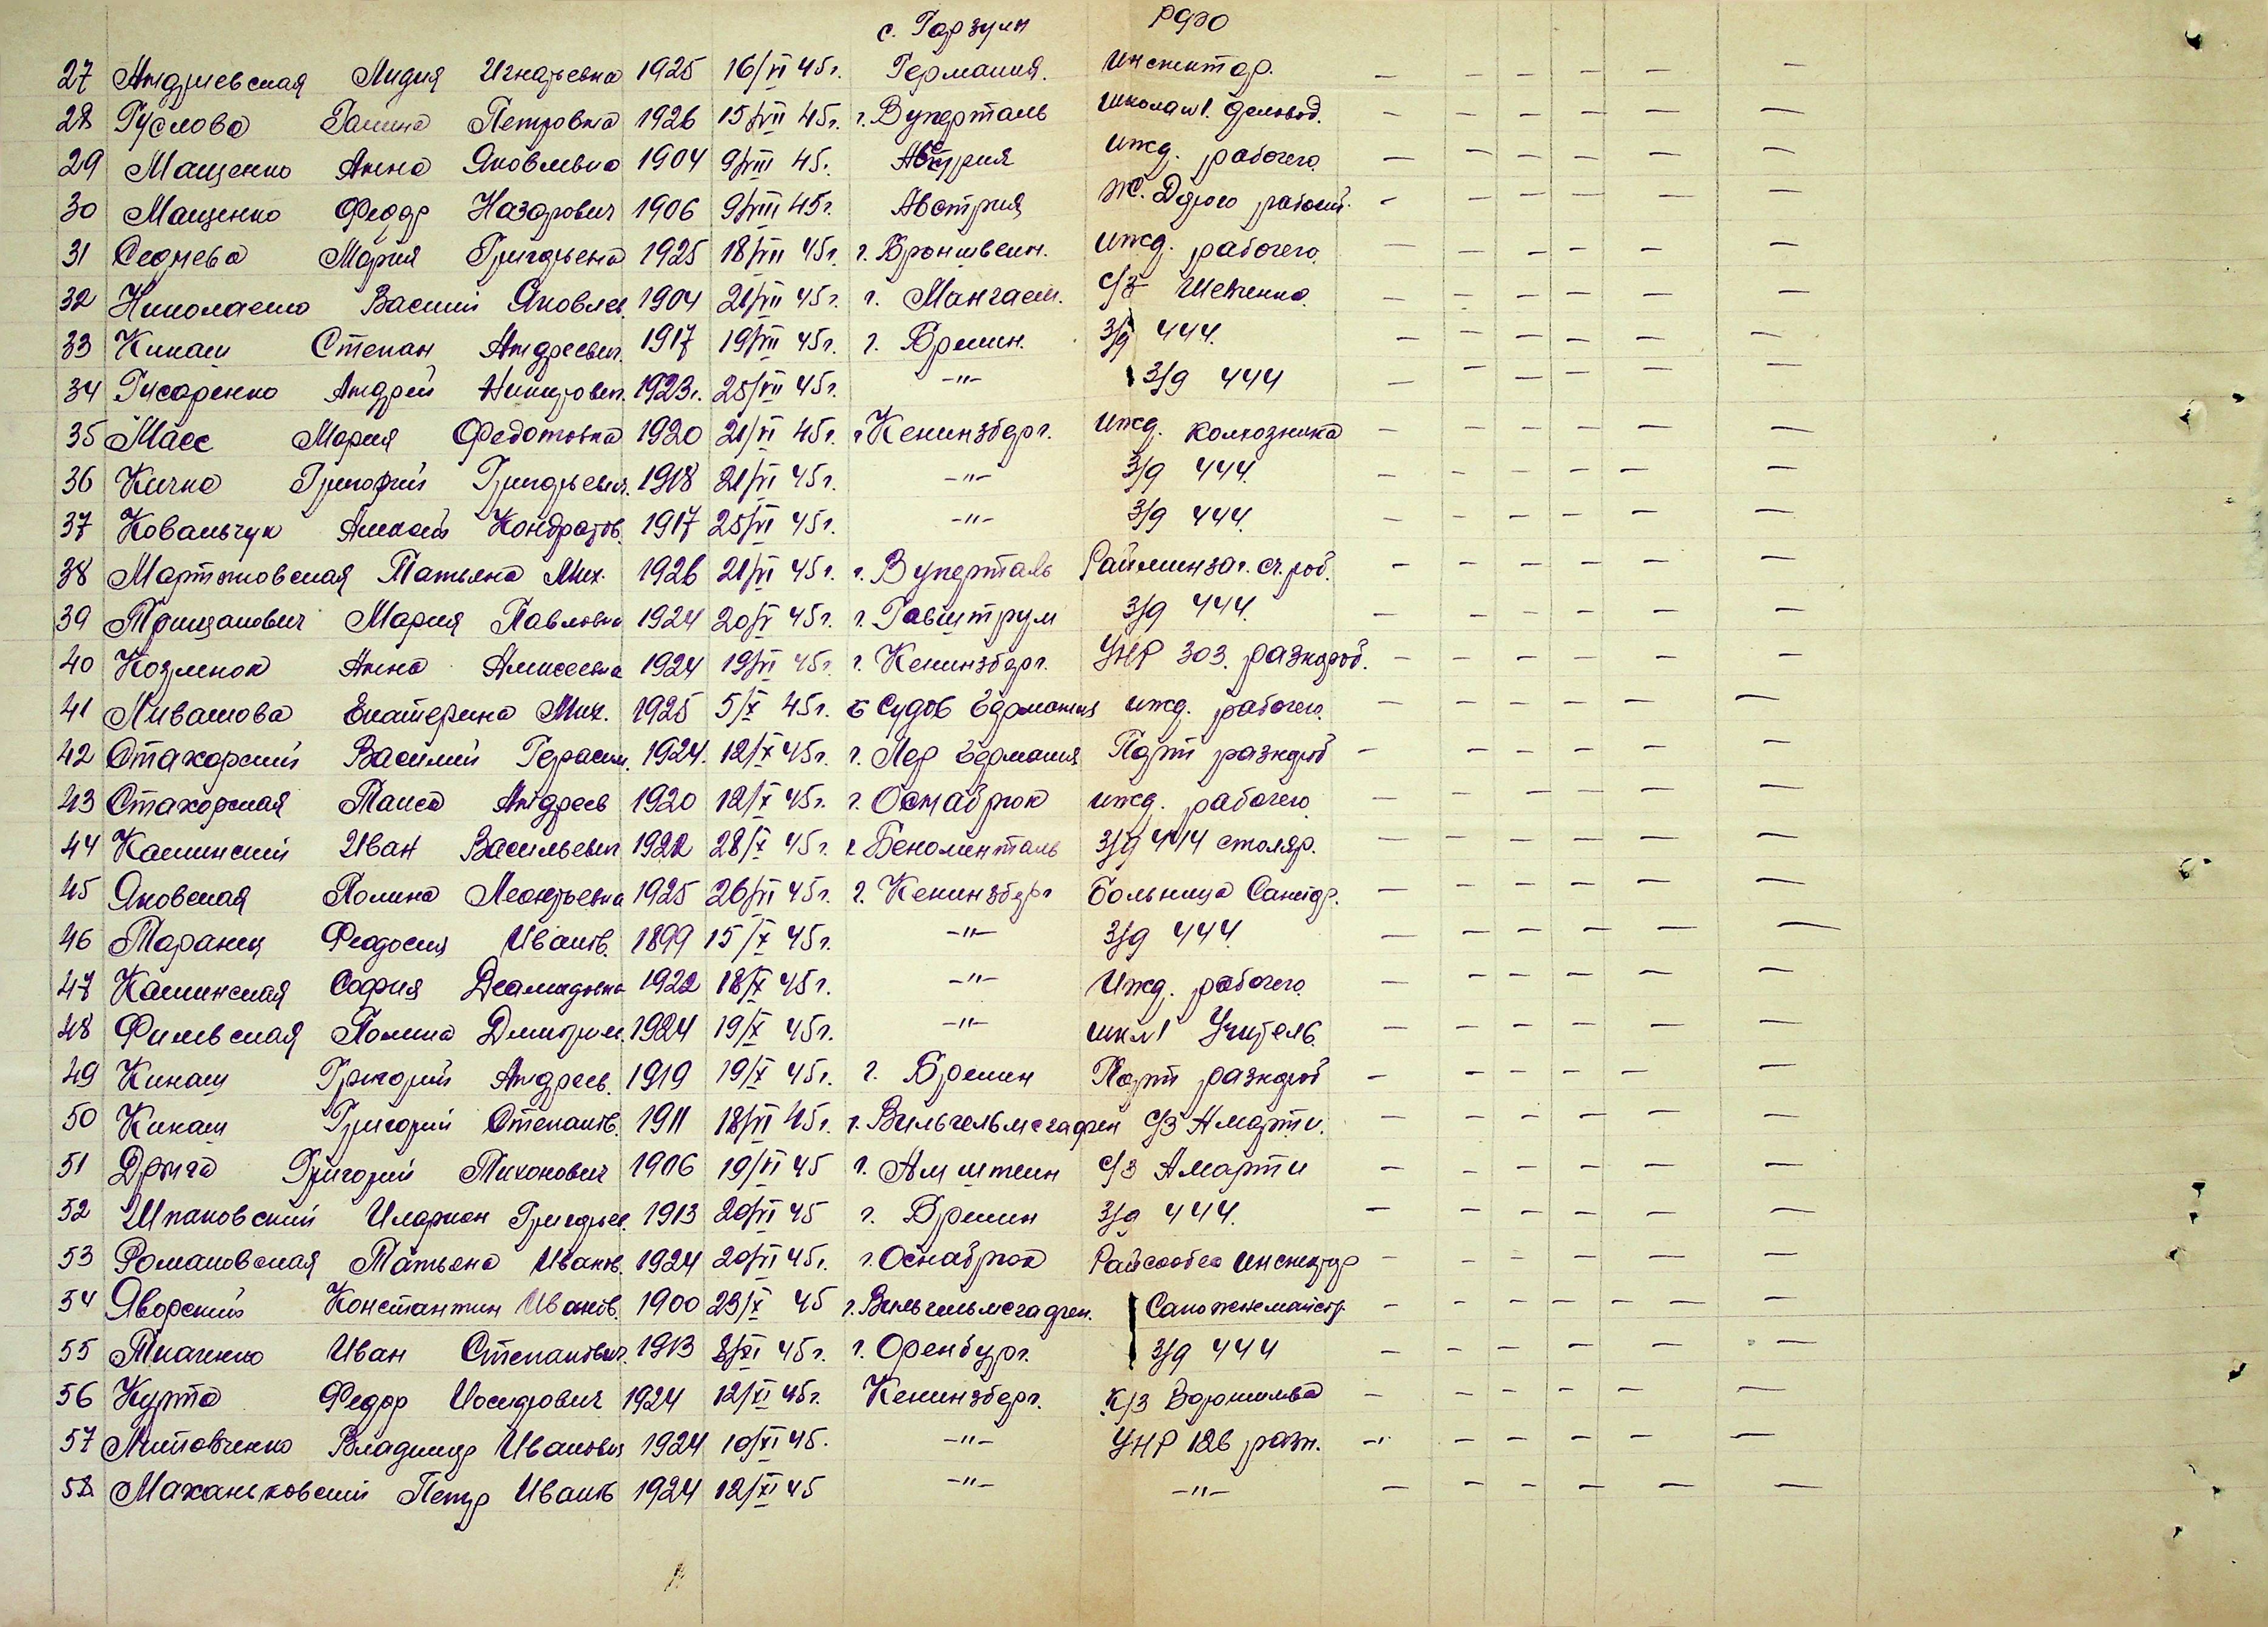 с. Гарзум РФО
27 Андриевская Лидия Игнатьевна 1925 16/VI 45г. Германия. Инспектор. — — — — — —
28 Гуслова Галина Петровна 1926 15/VII 45г. г. Вуперталь школа №1. деловод. — — — — — —
29 Мащенко Анна Яковлевна 1904 9/VIII 45г. Австрия ижд. рабочего. — — — — — —
30 Мащенко Федор Назарович 1906 9/VIII 45г. Австрия рабочий. — — — — — —
31 Седнева Мария Григорьевна 1925 18/VII 45г. г. Броншвеин. ижд. рабочего. — — — — — —
32 Николаенко Василий Яковлев. 1904 21/VII 45г. г. Мангаем. С/з Шевченко. — — — — — —
33 Кинаш Степан Андреевич. 1917 19/VII 45г. г. Бремин. З/д 444. — — — — — —
34 Гисаренко Андрей 1923г. 25/VII 45г. —"— З/д 444 — — — — — —
35 Масс Мария Федотовна 1920 21/VI 45г. г Кенинзберг. ижд. колхозника — — — — — —
36 Кичка Григорий Григорьевич. 1918 21/VI 45г. —"— З/д 444. — — — — — —
37 Ковальчук Алексей Кондратов. 1917 25/VI 45г. —"— З/д 444. — — — — — —
38 Мартыновская Татьяна Мих. 1926 21/VI 45г. г. Вуперталь Райминзаг. сч. роб. — — — — — —
39 Грищанович Мария Павловна 1924 20/V 45г. г. Гавштрум З/д 444. — — — — — —
40 Козленок Анна Алексеевна 1924 19/VI 45г г. Кенинзберг. УНР 303. разнороб. — — — — — —
41 Ливашова Екатерина Мих. 1925 5/X 45г. г Судов Германия ижд. рабочего. — — — — — —
42 Стахорский Василий Герасим. 1924. 12/X 45г. г. Лер Германия Порт разнороб — — — — — —
43 Стахорская Таиса Андреев 1920 12/X 45г. г. Оснабрюк ижд. рабочего — — — — — —
44 Каминский Иван Васильевич 1922 28/X 45г. г Бекоминталь З/д 444 столяр. — — — — — —
45 Яновская Полина Леонтьевна 1925 26/VI 45г. г. Кенинзберг Больница Санитар. — — — — — —
46 Таранец Феодосия Иванов. 1899 15/X 45г. —"— З/д 444. — — — — — —
47 Каминская София Деамидовна 1922 18/X 45г. —"— Ижд. рабочего. — — — — — —
48 Филевская Полина Дмитрие. 1924 19/X 45г. —"— шк №1 Учитель. — — — — — —
49 Кинаш Григорий Андреев. 1919 19/X 45г. г. Бремин Порт разнороб — — — — — —
50 Кинаш Григорий Степанов. 1911 18/VI 45г. г. Вильгельмсгафен С/З А марти. — — — — — —
51 Дрыга Григорий Тихонович 1906 19/VI 45 г. Амштеин С/з А марти — — — — — —
52 Шпаковский Иларион Григорьев. 1913 20/VI 45 г. Бремин З/д 444. — — — — — —
53 Романовская Татьяна Иванов. 1924 20/VI 45г. г. Оснабрюк Райсобес Инспектор — — — — — —
54 Яворский Константин Иванов. 1900 23/X 45 г. Вильгельмсгафен. Сапожнемайстр. — — — — — —
55 Ткаченко Иван Степанович. 1913 8/XI 45г. г. Оренбург. З/д 444 — — — — — —
56 Курта Федор Иосифович 1924 12/XI 45г. Кенинзберг. К/З Ворошилова — — — — — —
57 Литовченко Владимир Иванович 1924 10/XI 45. —"— УНР 126 разн. — — — — — —
58 Маханьковский Петр Иванов 1924 12/XI 45 —"— —"— — — — — — —